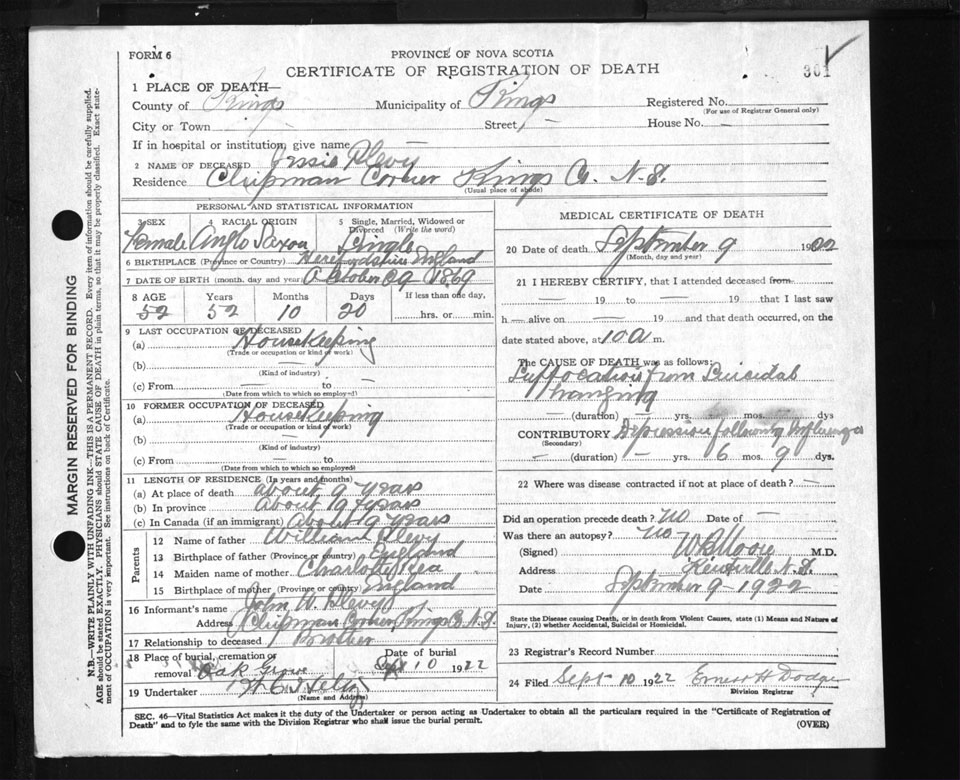 FORM 6
PROVINCE OF NOVA SCOTIA
CERTIFICATE OF REGISTRATION OF DEATH
301
1 PLACE OF DEATH—
County of Kings Municipality of Kings Registered No.
(For use of Registrar General only)
City or Town Street, — House No. —
If in hospital or institution, give name —
2 NAME OF DECEASED Jessie Plevy
Residence Chipman Corner Kings Co. N.S.
(Usual place of abode)
PERSONAL AND STATISTICAL INFORMATION
3 SEX 4 RACIAL ORIGIN 5 Single, Married, Widowed or Divorced (Write the word)
Female Anglo Saxon Single
6 BIRTHPLACE (Province or Country) Herefordshire England
7 DATE OF BIRTH (month, day and year) October 29 1869
8 AGE Years Months Days If less than one day,
52 52 10 20 hrs. or min.
9 LAST OCCUPATION OF DECEASED
(a) Housekeeping
(Trade or occupation or kind of work)
(b)
(Kind of industry)
(c) From — to —
(Date from which to which so employed)
10 FORMER OCCUPATION OF DECEASED
(a) Housekeeping
(Trade or occupation or kind of work)
(b)
(Kind of industry)
(c) From — to —
(Date from which to which so employed)
11 LENGTH OF RESIDENCE (In years and months)
(a) At place of death About 9 years
(b) In province About 19 years
(c) In Canada (if an immigrant) About 19 years
Parents
12 Name of father William Plevy
13 Birthplace of father (Province or country) England
14 Maiden name of mother Charlotte Rea
15 Birthplace of mother (Province or country) England
16 Informant's name John W. Plevy
Address Chipman Corner, Kings Co N.S.
17 Relationship to deceased Brother
18 Place of burial, cremation or removal Date of burial
Oak Grove Sept 10 1922
19 Undertaker
(Name and Address)
MEDICAL CERTIFICATE OF DEATH
20 Date of death September 9 1922
(Month, day and year)
21 I HEREBY CERTIFY, that I attended deceased from
— 19 — to — 19 — that I last saw
h — alive on — 19 — and that death occurred, on the
date stated above, at 10 a m.
The CAUSE OF DEATH was as follows:
Suffocation from Suicidal
Hanging
— (duration) — yrs. mos. dys
CONTRIBUTORY Depression following Influenza
(Secondary)
— (duration) — yrs. 6 mos. 9 dys.
22 Where was disease contracted if not at place of death? —
Did an operation precede death? No Date of —
Was there an autopsy? No
(Signed) W B Moore M.D.
Address Kentville N.S.
Date September 9 1922
State the Disease causing Death, or in death from Violent Causes, state (1) Means and Nature of
Injury, (2) whether Accidental, Suicidal or Homicidal.
23 Registrar's Record Number
24 Filed Sept 10 1922 Ernest H Dodge
Division Registrar
SEC. 46—Vital Statistics Act makes it the duty of the Undertaker or person acting as Undertaker to obtain all the particulars required in the "Certificate of Registration of
Death" and to fyle the same with the Division Registrar who shall issue the burial permit.
(OVER)
MARGIN RESERVED FOR BINDING
N.B.—WRITE PLAINLY WITH UNFADING INK—THIS IS A PERMANENT RECORD. Every item of information should be carefully supplied.
AGE should be stated EXACTLY. PHYSICIANS should STATE CAUSE OF DEATH in plain terms, so that it may be properly classified. Exact state-
ment of OCCUPATION is very important. See instructions on back of Certificate.